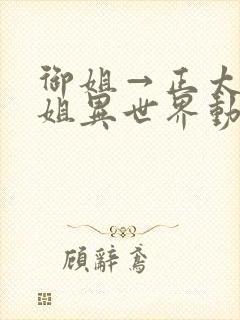 御姐→正太
姐異世界動
顧辭鳶